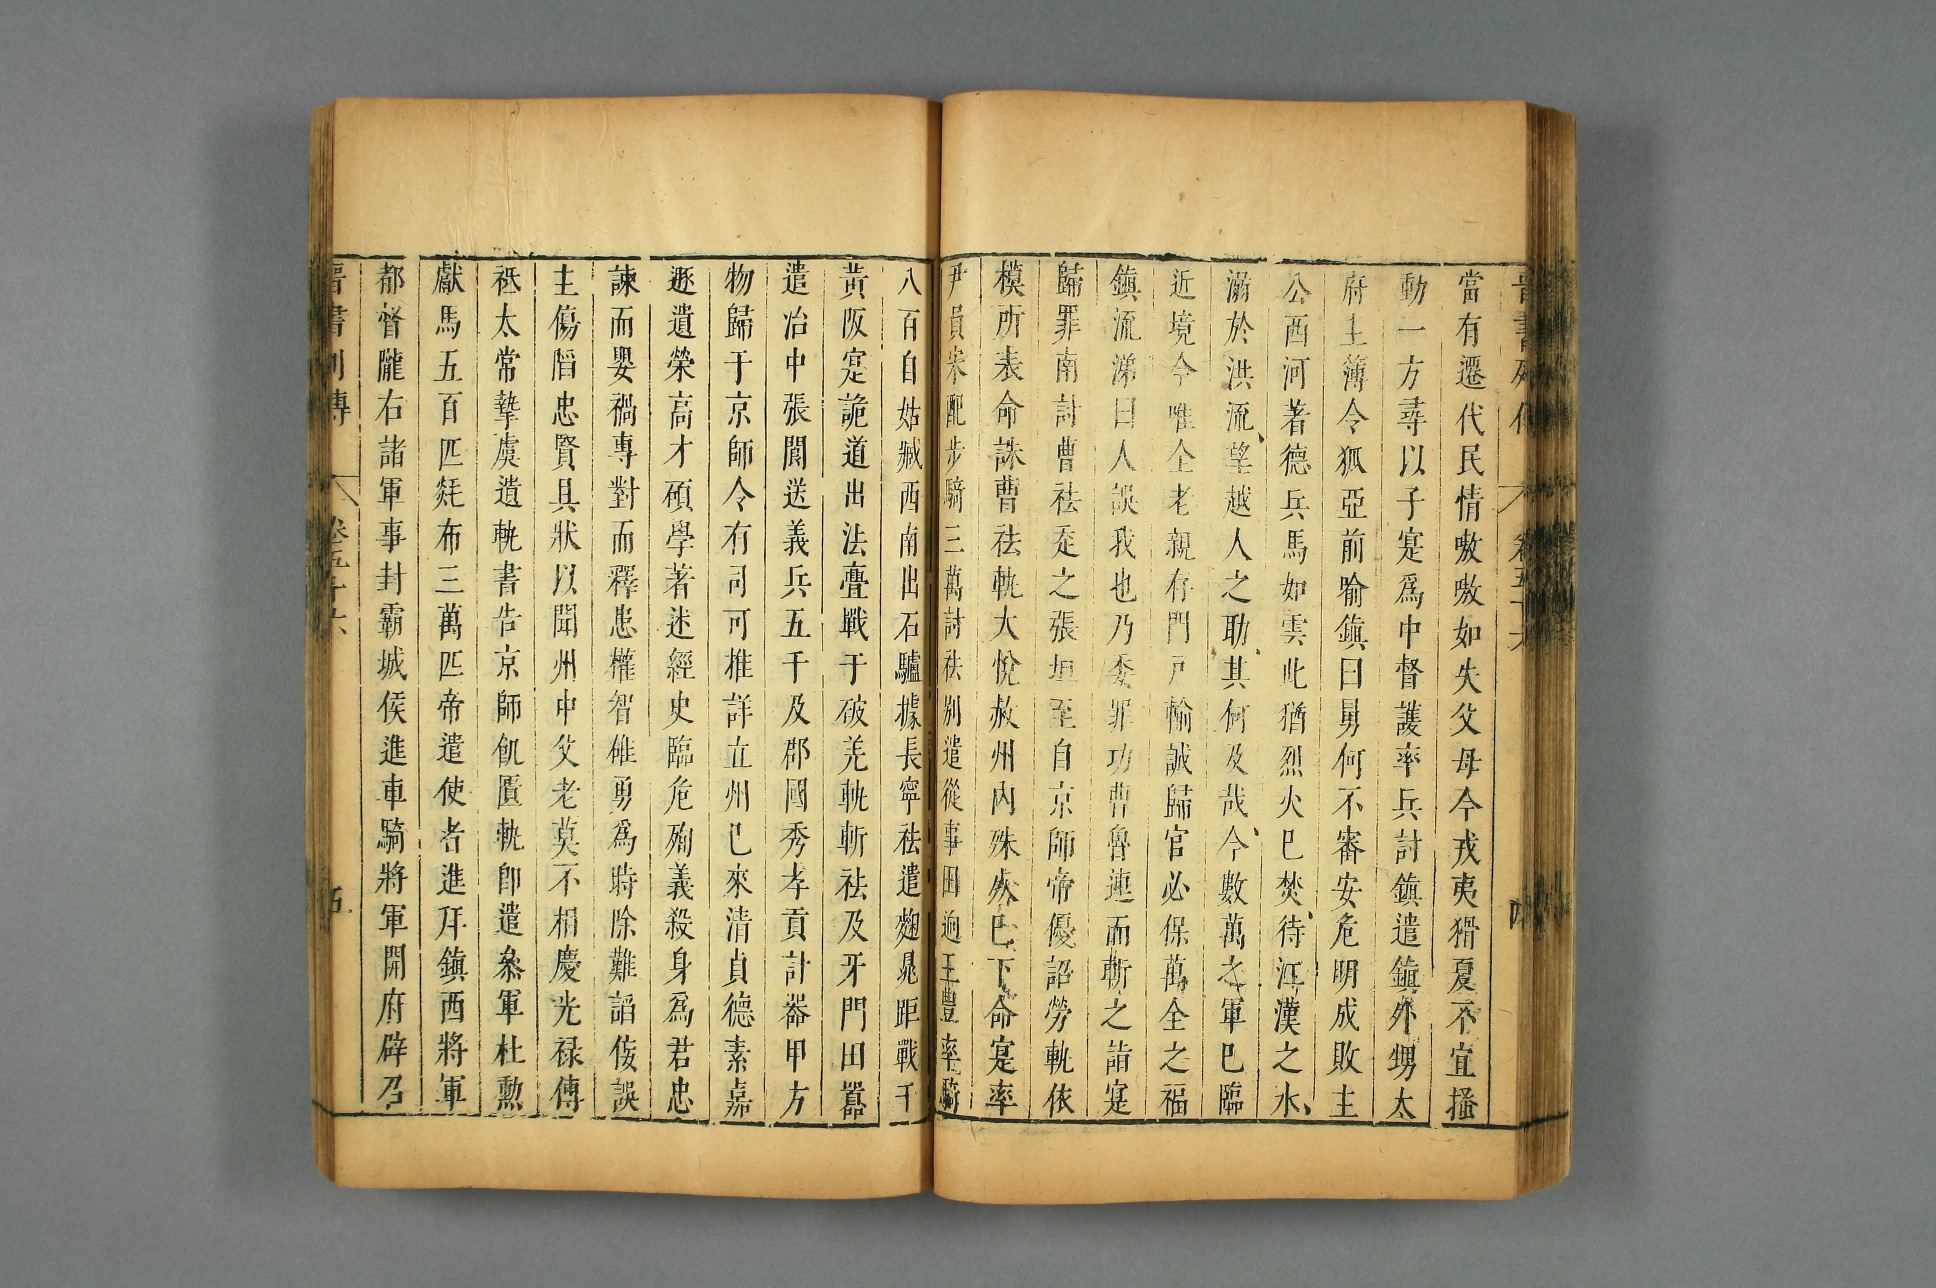 晉書列傳 卷五十六 四
當有遷代民情嗷嗷如失父母今戎夷猾夏不宜搔
動一方尋以子寔爲中督護率兵討鎮遣鎮外甥太
府主簿令狐亞前喻鎮曰舅何不審安危明成敗主
公西河著德兵馬如雲此猶烈火已焚待江漢之水
溺於洪流望越人之助其何及哉今數萬之軍已臨
近境今唯全老親存門戶輸誠歸官必保萬全之福
鎮流涕曰人誤我也乃委罪功曹魯連而斬之詣寔
歸罪南討曹祛走之張坦至自京師帝優詔勞軌依
模所表命誅曹祛軌大悅赦州內殊死已下命寔率
尹員宋配步騎三萬討祛別遣從事田迥王豐率騎
八百自姑臧西南出石驢據長寧祛遣麴晁距戰于
黃阪寔詭道出浩亹戰于破羌軌斬祛及牙門田嚻
遣治中張閬送義兵五千及郡國秀孝貢計器甲方
物歸于京師令有司可推詳立州已來清貞德素嘉
遯遺榮高才碩學著述經史臨危殉義殺身爲君忠
諫而嬰禍專對而釋患權智雄勇爲時除難謟佞誤
主傷䧟忠賢具狀以聞州中父老莫不相慶光禄傅
祗太常摯虞遺軌書告京師飢匱軌即遣叅軍杜勲
獻馬五百匹毯布三萬匹帝遣使者進拜鎮西將軍
都督隴右諸軍事封霸城侯進車騎將軍開府辟召
晉書列傳 卷五十六 五